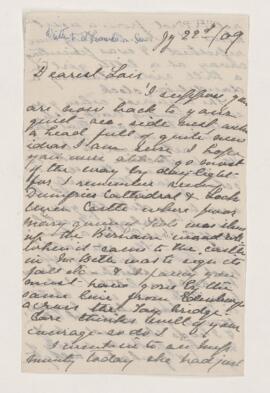 Jy 22nd/09
Dearest Lois
I suppose you
are now back to your
quiet sea side nest with
a head full of quite new
ideas I am sure. I hope
you were able to go most
of the way by daylight
for I remember seeing
Dumfries Cathedral & Loch
Leven Castle where poor
Mary Queen of Scots was shut
up, the Birnam
when it came to the castle
in Macbeth was to sign its
fall etc & I fancy you
must have gone by the
same line from Edinburgh
across the Tay bridge.
thinks well of your
courage so do I.
I
today she had just